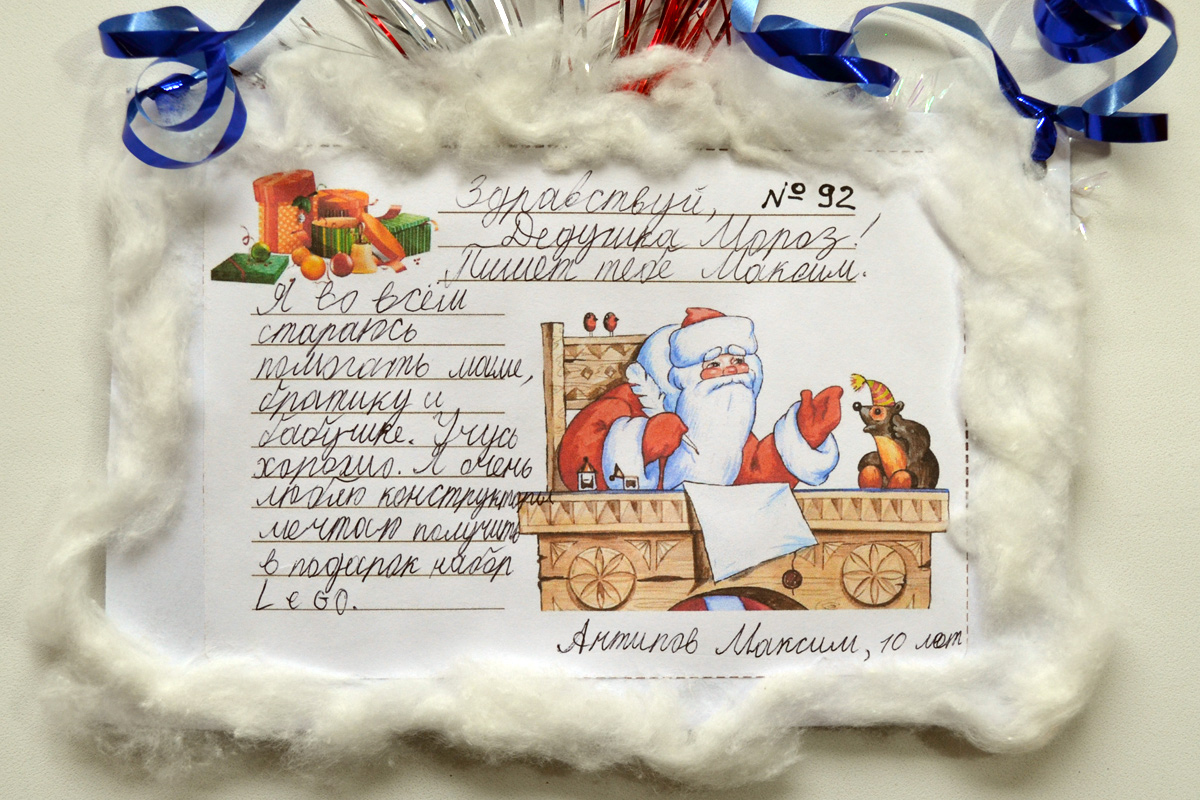 Здравствуй, № 92
Дедушка Мороз!
Пишет тебе Максим.
Я во всём
стараюсь
помогать маме,
братику и
бабушке. Учусь
хорошо. Я очень
люблю конструкторы
мечтаю получить
в подарок набор
LeGO.
Антипов Максим, 10 лет